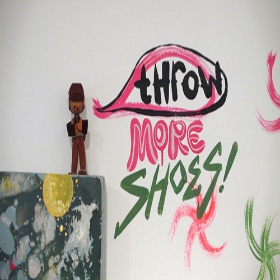 throw
MORE
SHOES!